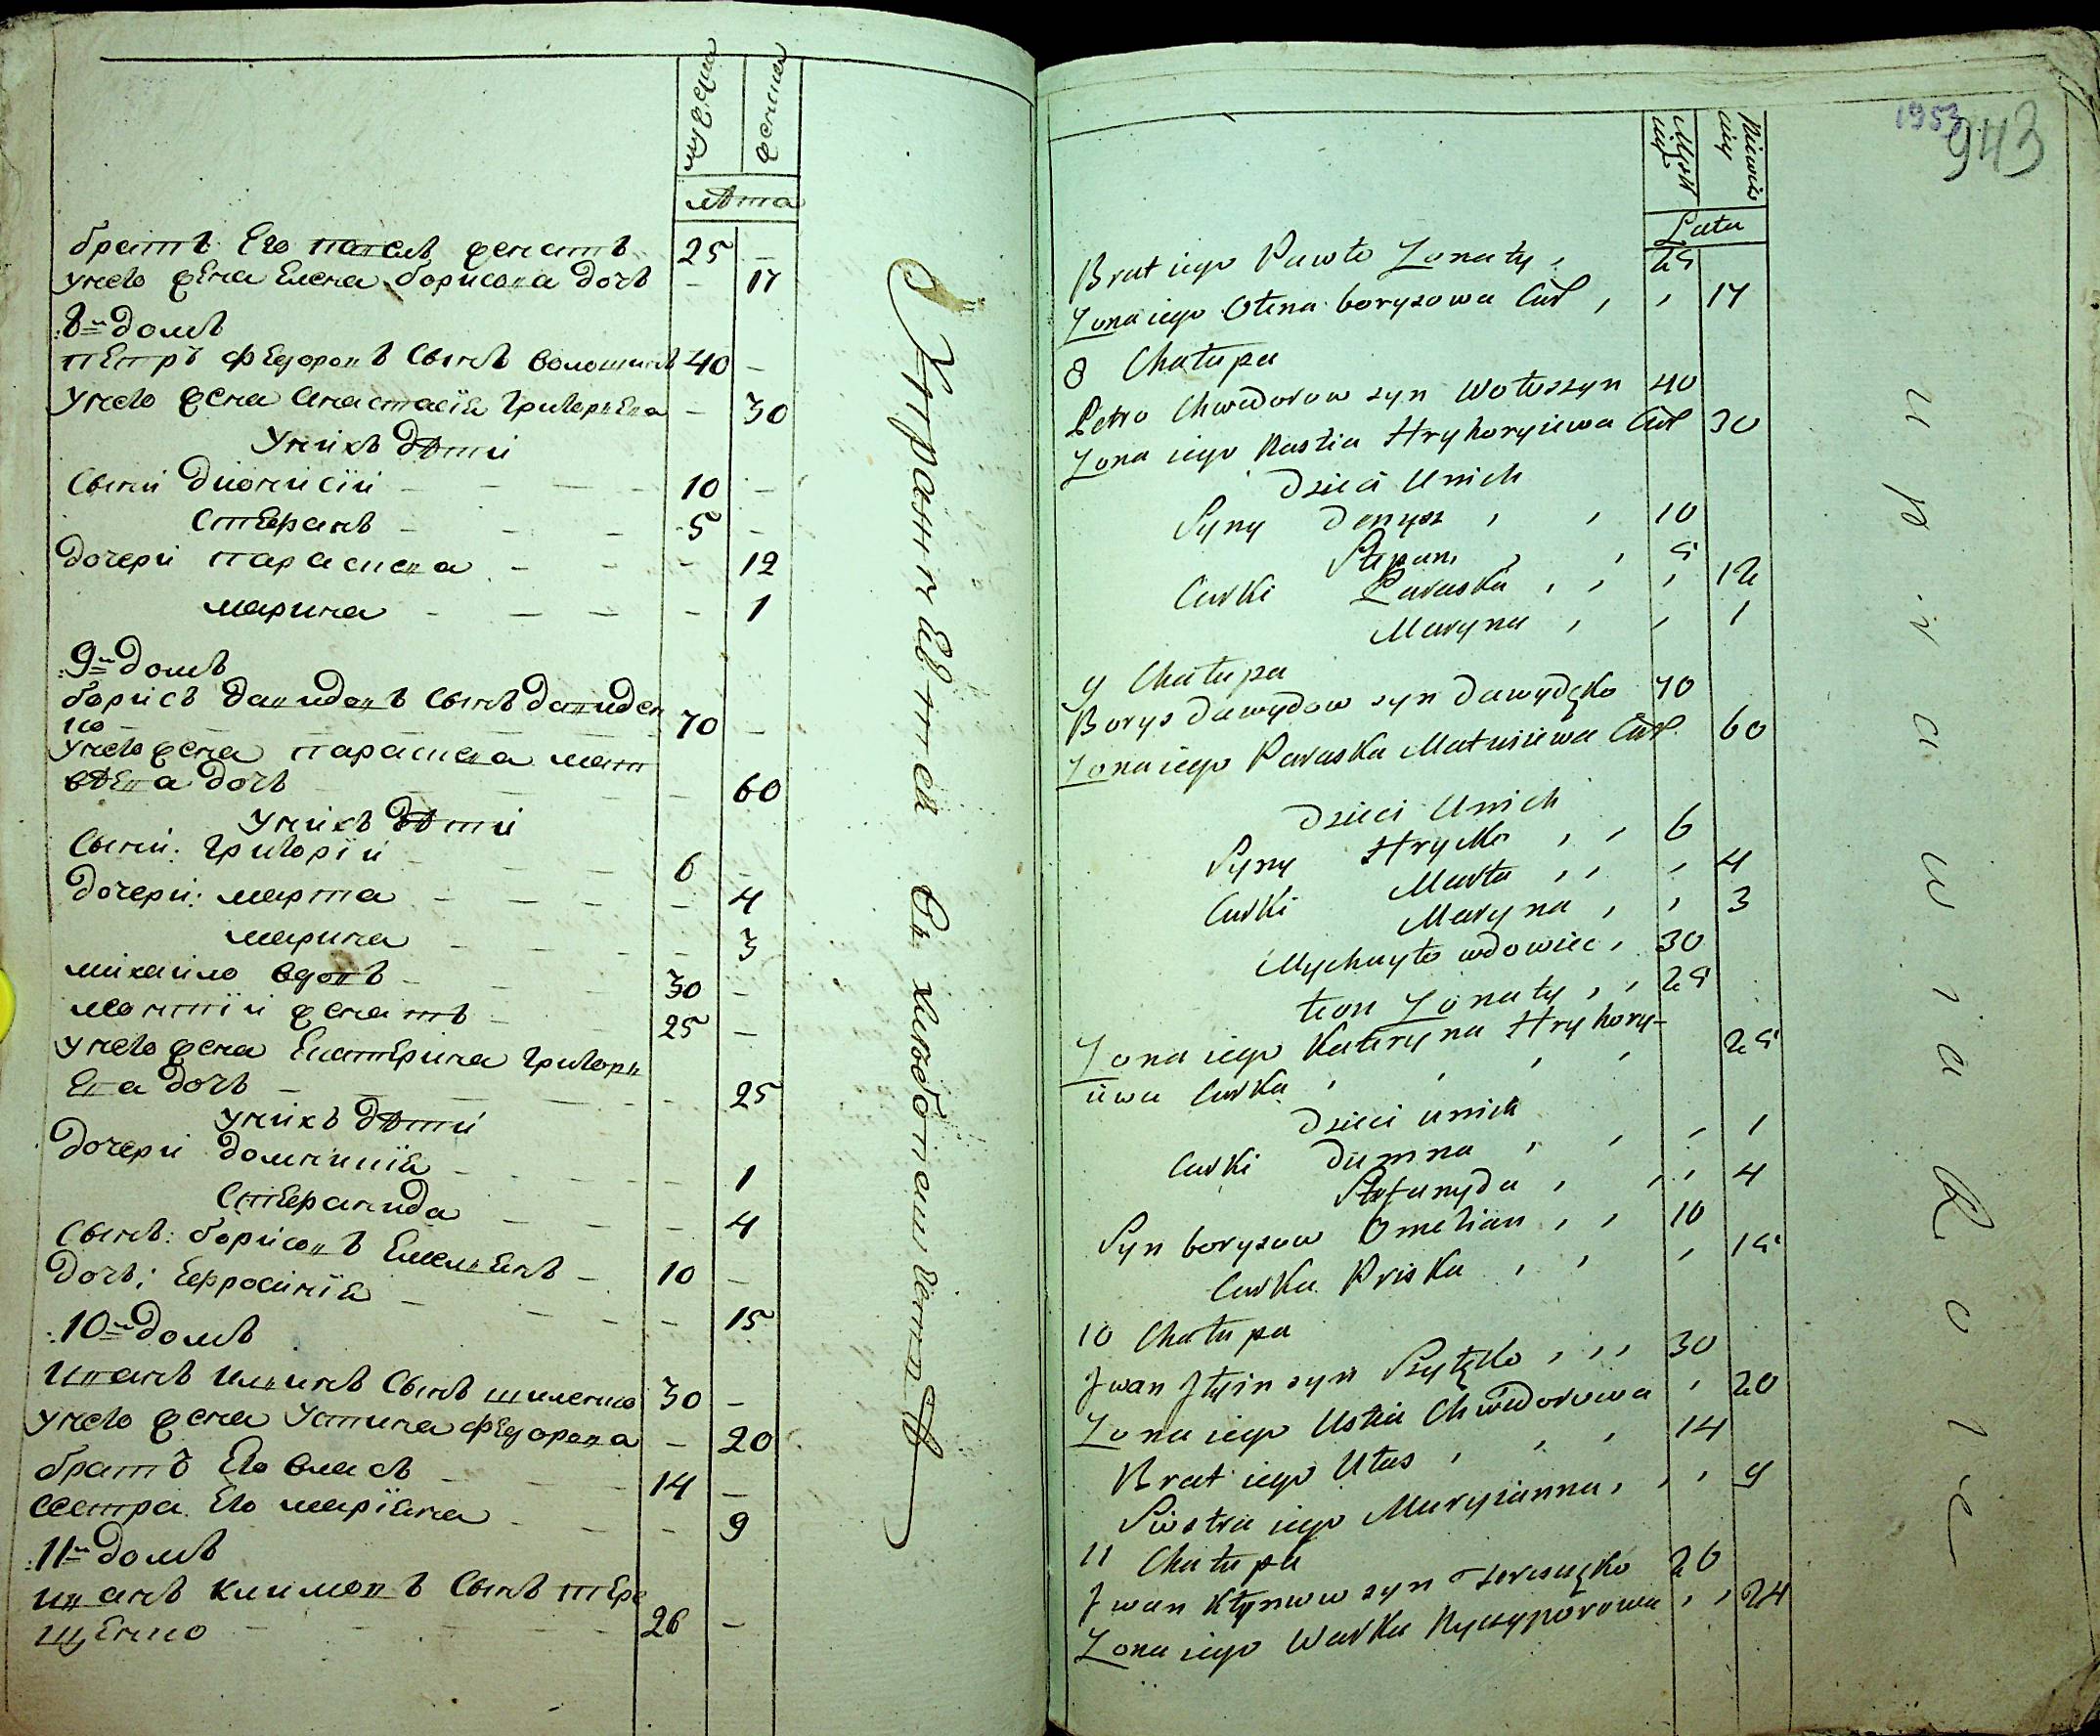 мужеска
женска
лѣта
братъ Его павелъ женатъ 25 —
унего жена Елена борисова дочь — 17
8й домъ
пЕтръ фЕдоровъ Сынъ волошинъ 40 —
унего жена анастасїя григорьЕва — 30
Унихъ дѣти
Сыни дионисїи 10 —
СтЕфанъ 5 —
дочери параскева — 12
марина — 1
9й домъ
борисъ давидовъ Сынъ давиден
ко 70 —
унего жена параскева мат
вѣЕва дочь — 60
унихъ дѣти
Сыни: григорїи 6 —
дочери: марта — 4
марина — 3
михаило вдовъ 30 —
леонтїи женатъ 25 —
унего жена ЕкатЕрина григорь
Ева дочь — 25
унихъ дѣти
дочери домникїя — 1
СтЕфанида — 4
Сынъ: борисовъ ЕмельЕнъ — 10 —
дочь: Ефросинїя — 15
10й домъ
иванъ ильинъ Сынъ шиленко 30 —
унего жена Устина фЕдорова — 20
братъ Его власъ 14 —
сестра Его марїяна — 9
11й домъ
иванъ климовъ Сынъ тЕре
щЕнко 26 —
1953
943
Męsk
iey
Niewies
ciey
Lata
Brat iego Pawło Zonaty 25
Zona iego Ołena borysowa Cur 17
8 Chałupa
Petro Chwedorow syn Wołoszyn 40
Zona iego Nastia Hryhoryiewa Cur 30
Dzieci Unich
Syny Denysz 10
Stepan 5
Curki Paraska 12
Maryna 1
9 Chałupa
Borys Dawydow syn Dawydęko 70
Zona iego Paraska Matwiiewa Cur 60
Dzieci Unich
Syny Hryćko 6
Curki Marta 4
Maryna 3
Mychayło wdowiec 30
Łeon Zonaty 25
Zona iego Kateryna Hryhory-
iewa Curka 25
Dzieci unich
Curki Dumna 1
Stefanyda 4
Syn borysow Omelian 10
Curka Priska 15
10 Chałupa
Jwan Jłyin syn Szyłęko 30
Zona iego Ustia Chwedorowa 20
Brat iego Ułas 14
Siostra iego Maryianna 9
11 Chałupa
Jwan Kłymow syn Tereszęko 26
Zona iego Warka Nyczyporowa 24